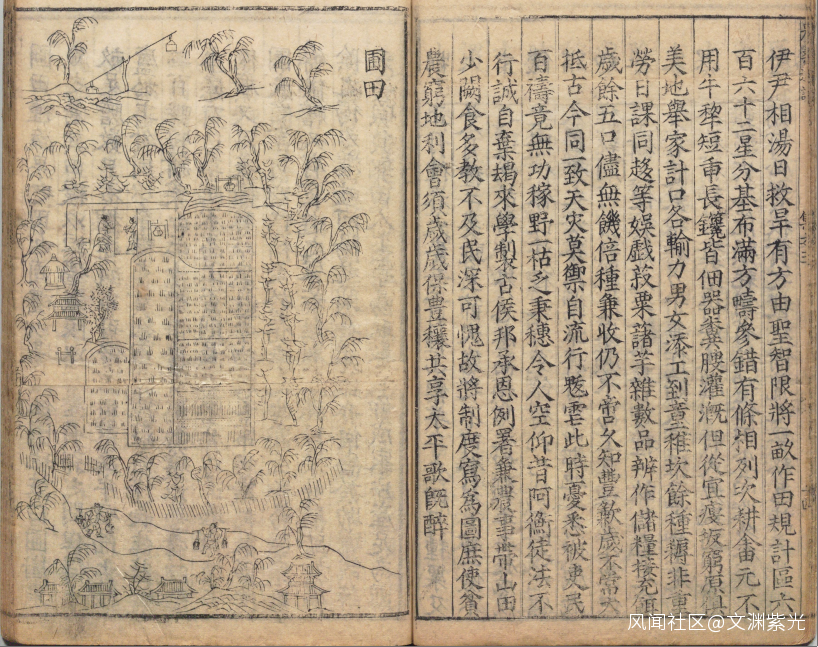 伊尹相湯日救旱有方由聖智限將一畝作田規計區六
百六十二星分基布滿方疇參錯有條相列次耕畬元不
用牛犂短臿長鑱皆佃器糞腴灌溉但從宜瘦坂窮原俱
美地舉家計口各輸力男女添工到童稚坎餘種耨非重
勞日課同趍等娛戲菽粟藷芋雜數品辨作儲糧接充餌
歲餘五口儘無饑倍種兼收仍不啻久知豊歉歲不常大
抵古今同一致天灾莫禦自流行雩此時憂悉被吏民
百禱竟無功稼野一枯乏秉穗令人空仰昔阿衡徒法不
行誠自棄朅來學製古侯邦承恩例署兼農事帶山田
少闕食多教不及民深可愧故將制度寫爲圖庶使貧
農窮地利會須歲歲保豊穰共享太平歌旣醉
圃田
风闻社区@文渊紫光